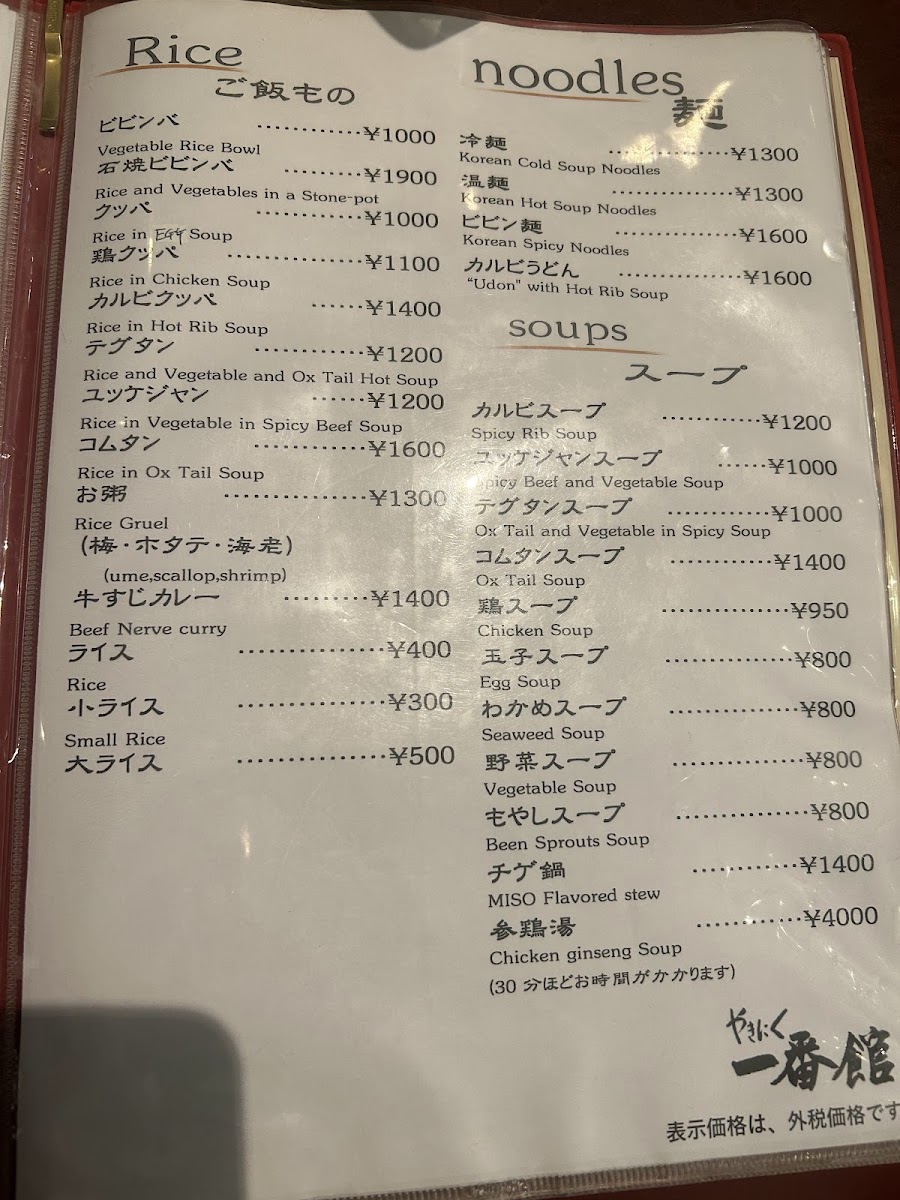 Rice
ご飯もの
ビビンバ …………¥1000
Vegetable Rice Bowl
石焼ビビンバ …………¥1900
Rice and Vegetables in a Stone-pot
クッパ …………¥1000
Rice in EGG Soup
鶏クッパ …………¥1100
Rice in Chicken Soup
カルビクッパ ……¥1400
Rice in Hot Rib Soup
テグタン …………¥1200
Rice and Vegetable and Ox Tail Hot Soup
ユッケジャン ……¥1200
Rice in Vegetable in Spicy Beef Soup
コムタン …………¥1600
Rice in Ox Tail Soup
お粥 …………¥1300
Rice Gruel
(梅・ホタテ・海老)
(ume,scallop,shrimp)
牛すじカレー ………¥1400
Beef Nerve curry
ライス ……………¥400
Rice
小ライス ……………¥300
Small Rice
大ライス ……………¥500
noodles
麺
冷麺 …………¥1300
Korean Cold Soup Noodles
温麺 …………¥1300
Korean Hot Soup Noodles
ビビン麺 …………¥1600
Korean Spicy Noodles
カルビうどん …………¥1600
“Udon” with Hot Rib Soup
soups
スープ
カルビスープ …………¥1200
Spicy Rib Soup
ユッケジャンスープ ……¥1000
Spicy Beef and Vegetable Soup
テグタンスープ …………¥1000
Ox Tail and Vegetable in Spicy Soup
コムタンスープ …………¥1400
Ox Tail Soup
鶏スープ ……………¥950
Chicken Soup
玉子スープ ……………¥800
Egg Soup
わかめスープ ……………¥800
Seaweed Soup
野菜スープ ……………¥800
Vegetable Soup
もやしスープ ……………¥800
Been Sprouts Soup
チゲ鍋 …………¥1400
MISO Flavored stew
参鶏湯 …………¥4000
Chicken ginseng Soup
(30 分ほどお時間がかかります)
やきにく
一番館
表示価格は、外税価格です